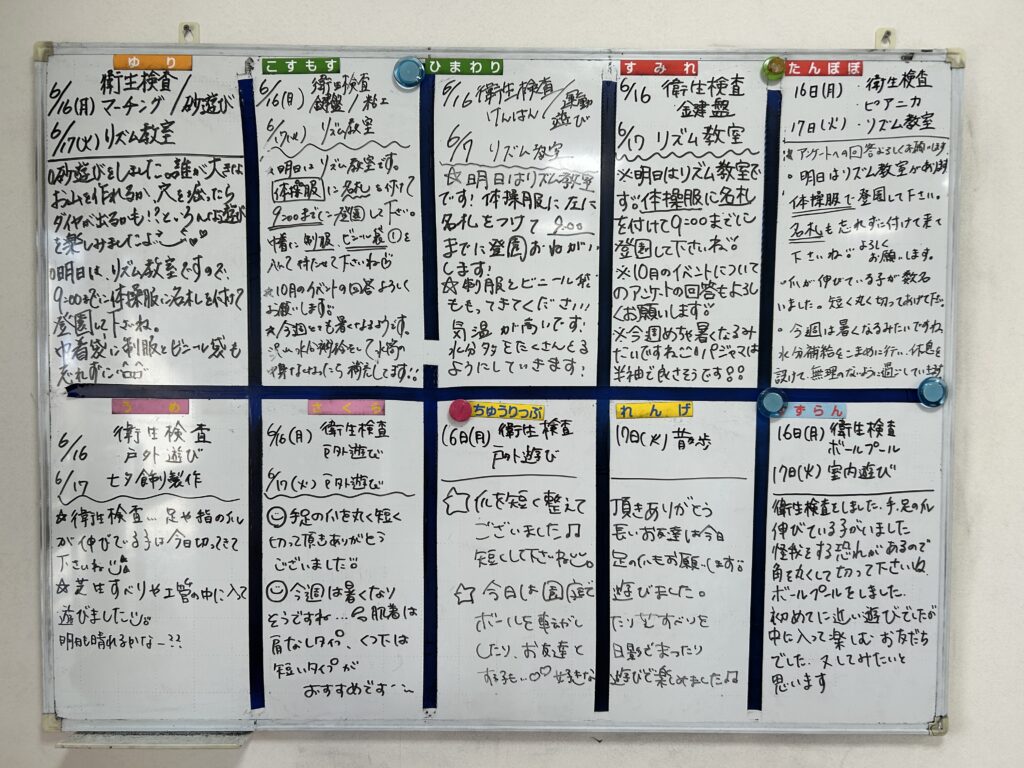 ゆり
6/16(月) 衛生検査
マーチング/砂遊び
6/17(火) リズム教室
○砂遊びをしました。誰が大きな
お山を作れるか、穴を掘ったら
ダイヤが出るかも!?というお遊び
を楽しみましたよ
○明日は、リズム教室ですので、
9:00までに体操服に名札を付けて
登園して下さいね。
巾着袋に制服とビニール袋も
忘れずに
こすもす
6/16(月) 衛生検査
鍵盤/粘土
6/17(火) リズム教室
※明日はリズム教室です。
体操服に名札を付けて
9:00までに登園して下さい。
巾着に制服、ビニール袋①を
入れて持たせて下さいね
☆10月のイベントの回答よろしく
お願いします
☆今週とても暑くなるようです。
水分補給をして水筒
ひまわり
6/16 衛生検査
けんばん/運動遊び
6/17 リズム教室
☆明日はリズム教室
です!体操服に左に
名札をつけて 9:00
までに登園おねがい
します!
☆制服とビニール袋
ももってきてください!
気温が高いです!
水分をたくさんとる
ようにしていきます!
すみれ
6/16 衛生検査
鍵盤
6/17 リズム教室
※明日はリズム教室で
す。体操服に名札
を付けて9:00までに
登園して下さいね
※10月のイベントについて
のアンケートの回答もよろし
くお願いします
※今週めちゃ暑くなるみ
たいですね パジャマは
半袖で良さそうです
たんぽぽ
16日(月)・衛生検査
・ピアニカ
17日(火)・リズム教室
※アンケートへの回答よろしくお願いします
・明日はリズム教室があります
体操服で登園して下さい。
名札も忘れずに付けて来て
下さいね よろしく
お願いします。
・爪が伸びている子が数名
いました。短く丸く切ってあげて下さい
・今週は暑くなるみたいですね
水分補給をこまめに行い、休息を
設けて無理のないように過ごしています
うめ
6/16 衛生検査
戸外遊び
6/17 七夕飾り製作
☆衛生検査…足や指の爪
が伸びている子は今日切ってきて
下さいね
☆芝生すべりや土管の中に入って
遊びました
明日も晴れるかな~??
さくら
6/16(月) 衛生検査
戸外遊び
6/17(火) 戸外遊び
手足の爪を丸く短く
切って頂きありがとう
ございました
今週は暑くなり
そうですね…お服着は
肩なしタイプ、くつ下は
短いタイプが
おすすめです
ちゅうりっぷ
16日(月) 衛生検査
戸外遊び
☆爪を短く整えて
ございました♫
短くして下さいね
☆今日は園庭で
ボールを転がし
したり、お友達と
するも…♡ 好きな
れんげ
17日(火) 散歩
頂きありがとう
長いお友達は今日
足の爪もお願いします
遊びました。
たりをすべりを
日影でまったり
遊びを楽しめました♫
ずらん
16日(月) 衛生検査
ボールプール
17日(火) 室内遊び
衛生検査をしました。手、足の爪
伸びている子がいました
怪我をする恐れがあるので
角を丸くして切って下さいね
ボールプールをしました。
初めてに近い遊びでしたが
中に入って楽しむお友だち
でした。又してみたいと
思います